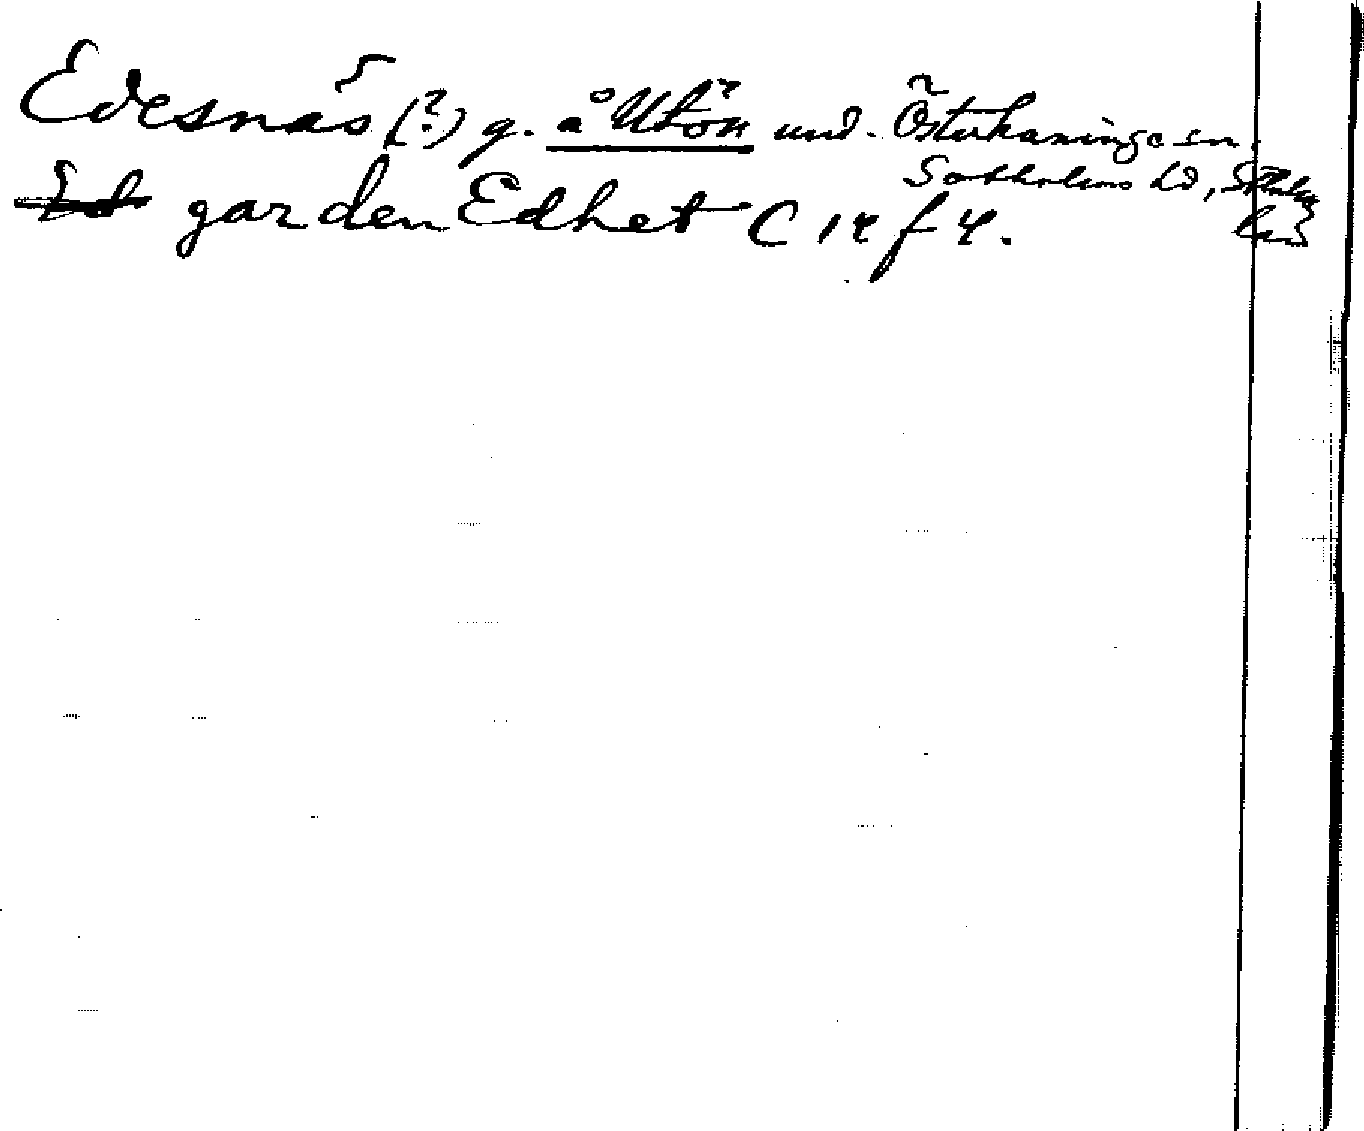 Edesnäs (?) g. å Utön und. Österhaninge sn.
Sotholms hd,
garden Edhet C 14 f 4.